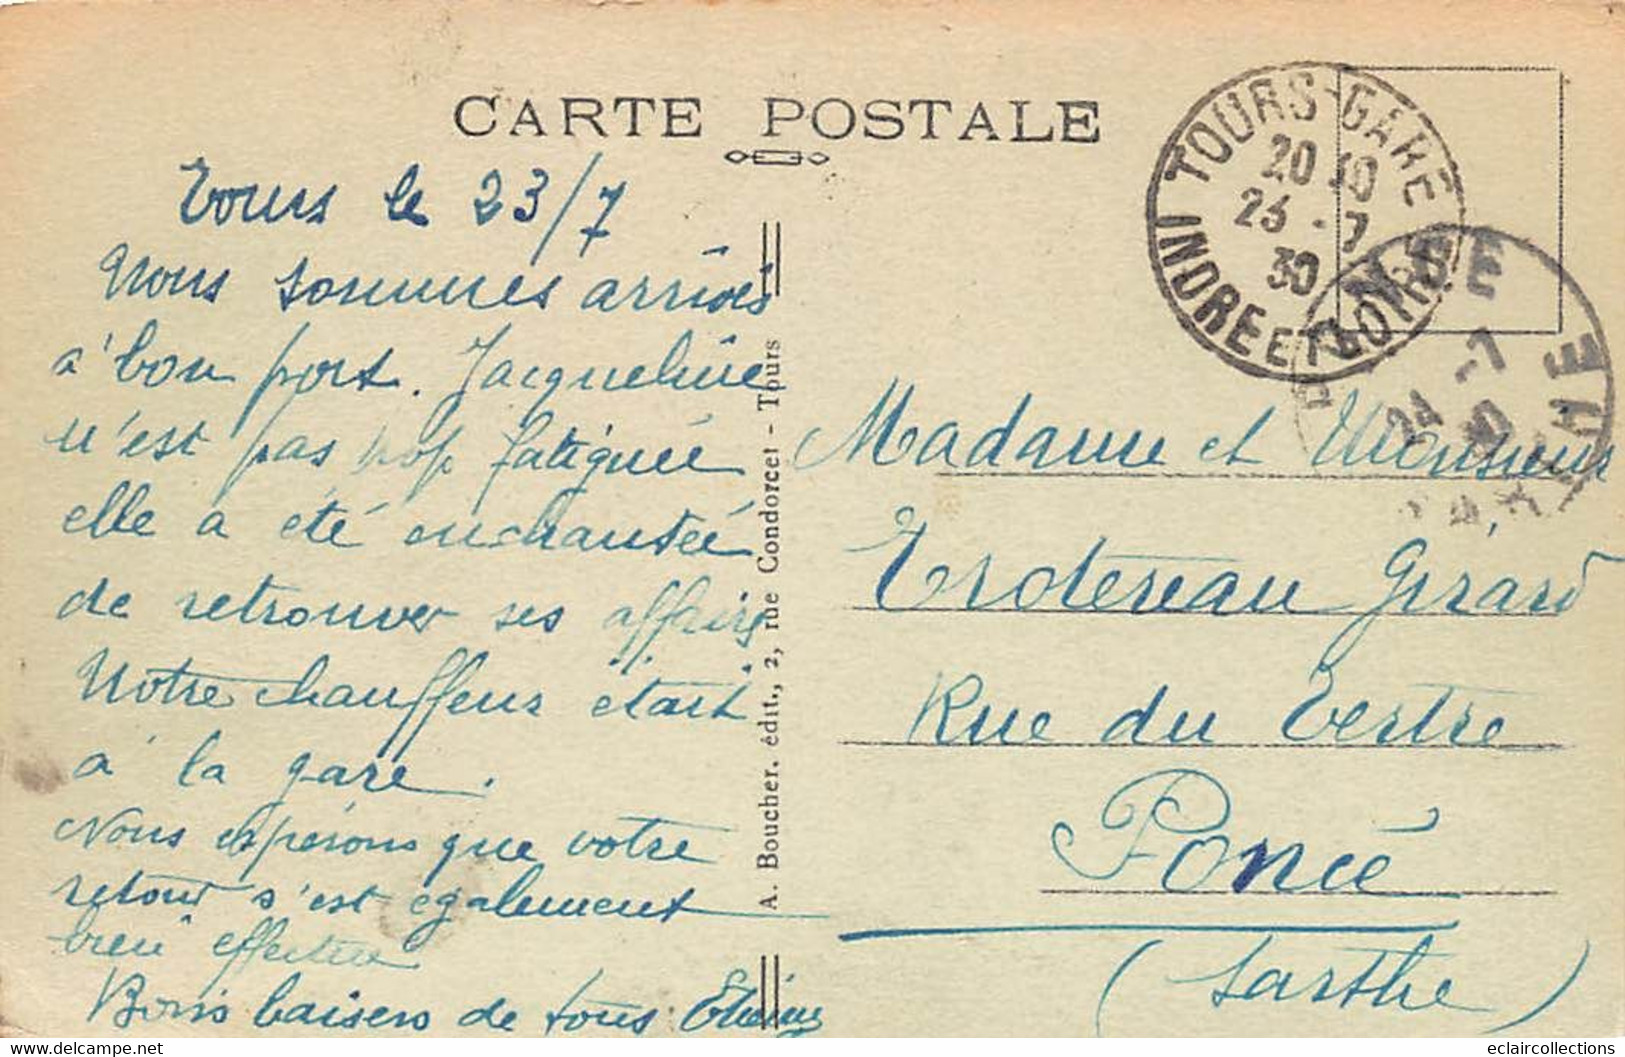 CARTE POSTALE
Tours le 23/7
Nous sommes arrivés
à bon port. Jacqueline
n'est pas trop fatiguée
elle a été enchantée
de retrouver ses affaires
Notre chauffeur était
à la gare.
Nous espérons que votre
retour s'est également
bien effectué
Bons baisers de tous
A. Boucher, édit., 2, rue Condorcet - Tours
TOURS-GARE
20 30
23 - 7
30
INDRE ET LOIRE
24 -7
30
SARTHE
Madame et Monsieur
Girard
Rue du Tertre
Poncé
(Sarthe)
eclaircollections
delcampe.net